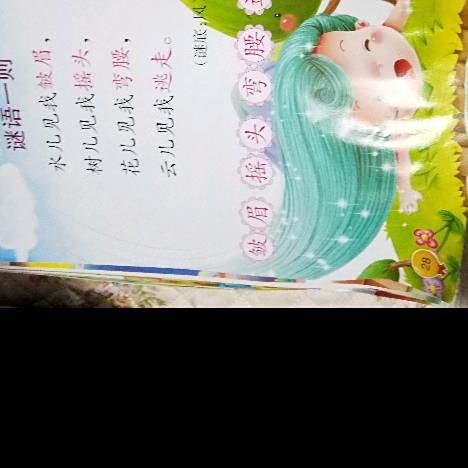 谜语一则
水儿见我皱眉，
树儿见我摇头，
花儿见我弯腰，
云儿见我逃走。
（谜底：风
皱眉 摇头 弯腰
28